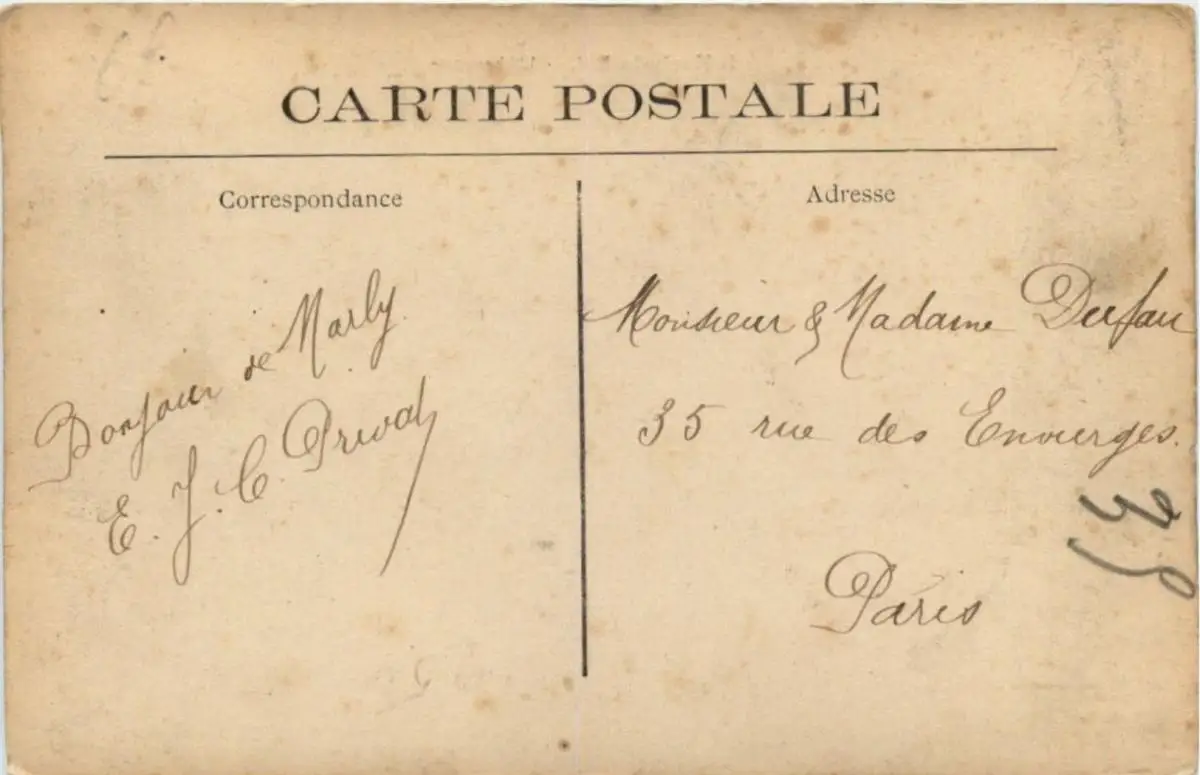 CARTE POSTALE
Correspondance
Bonjour de Marly.
E. J. C. Privat
Adresse
Monsieur & Madame Dufau
35 rue des Envierges.
35
Paris